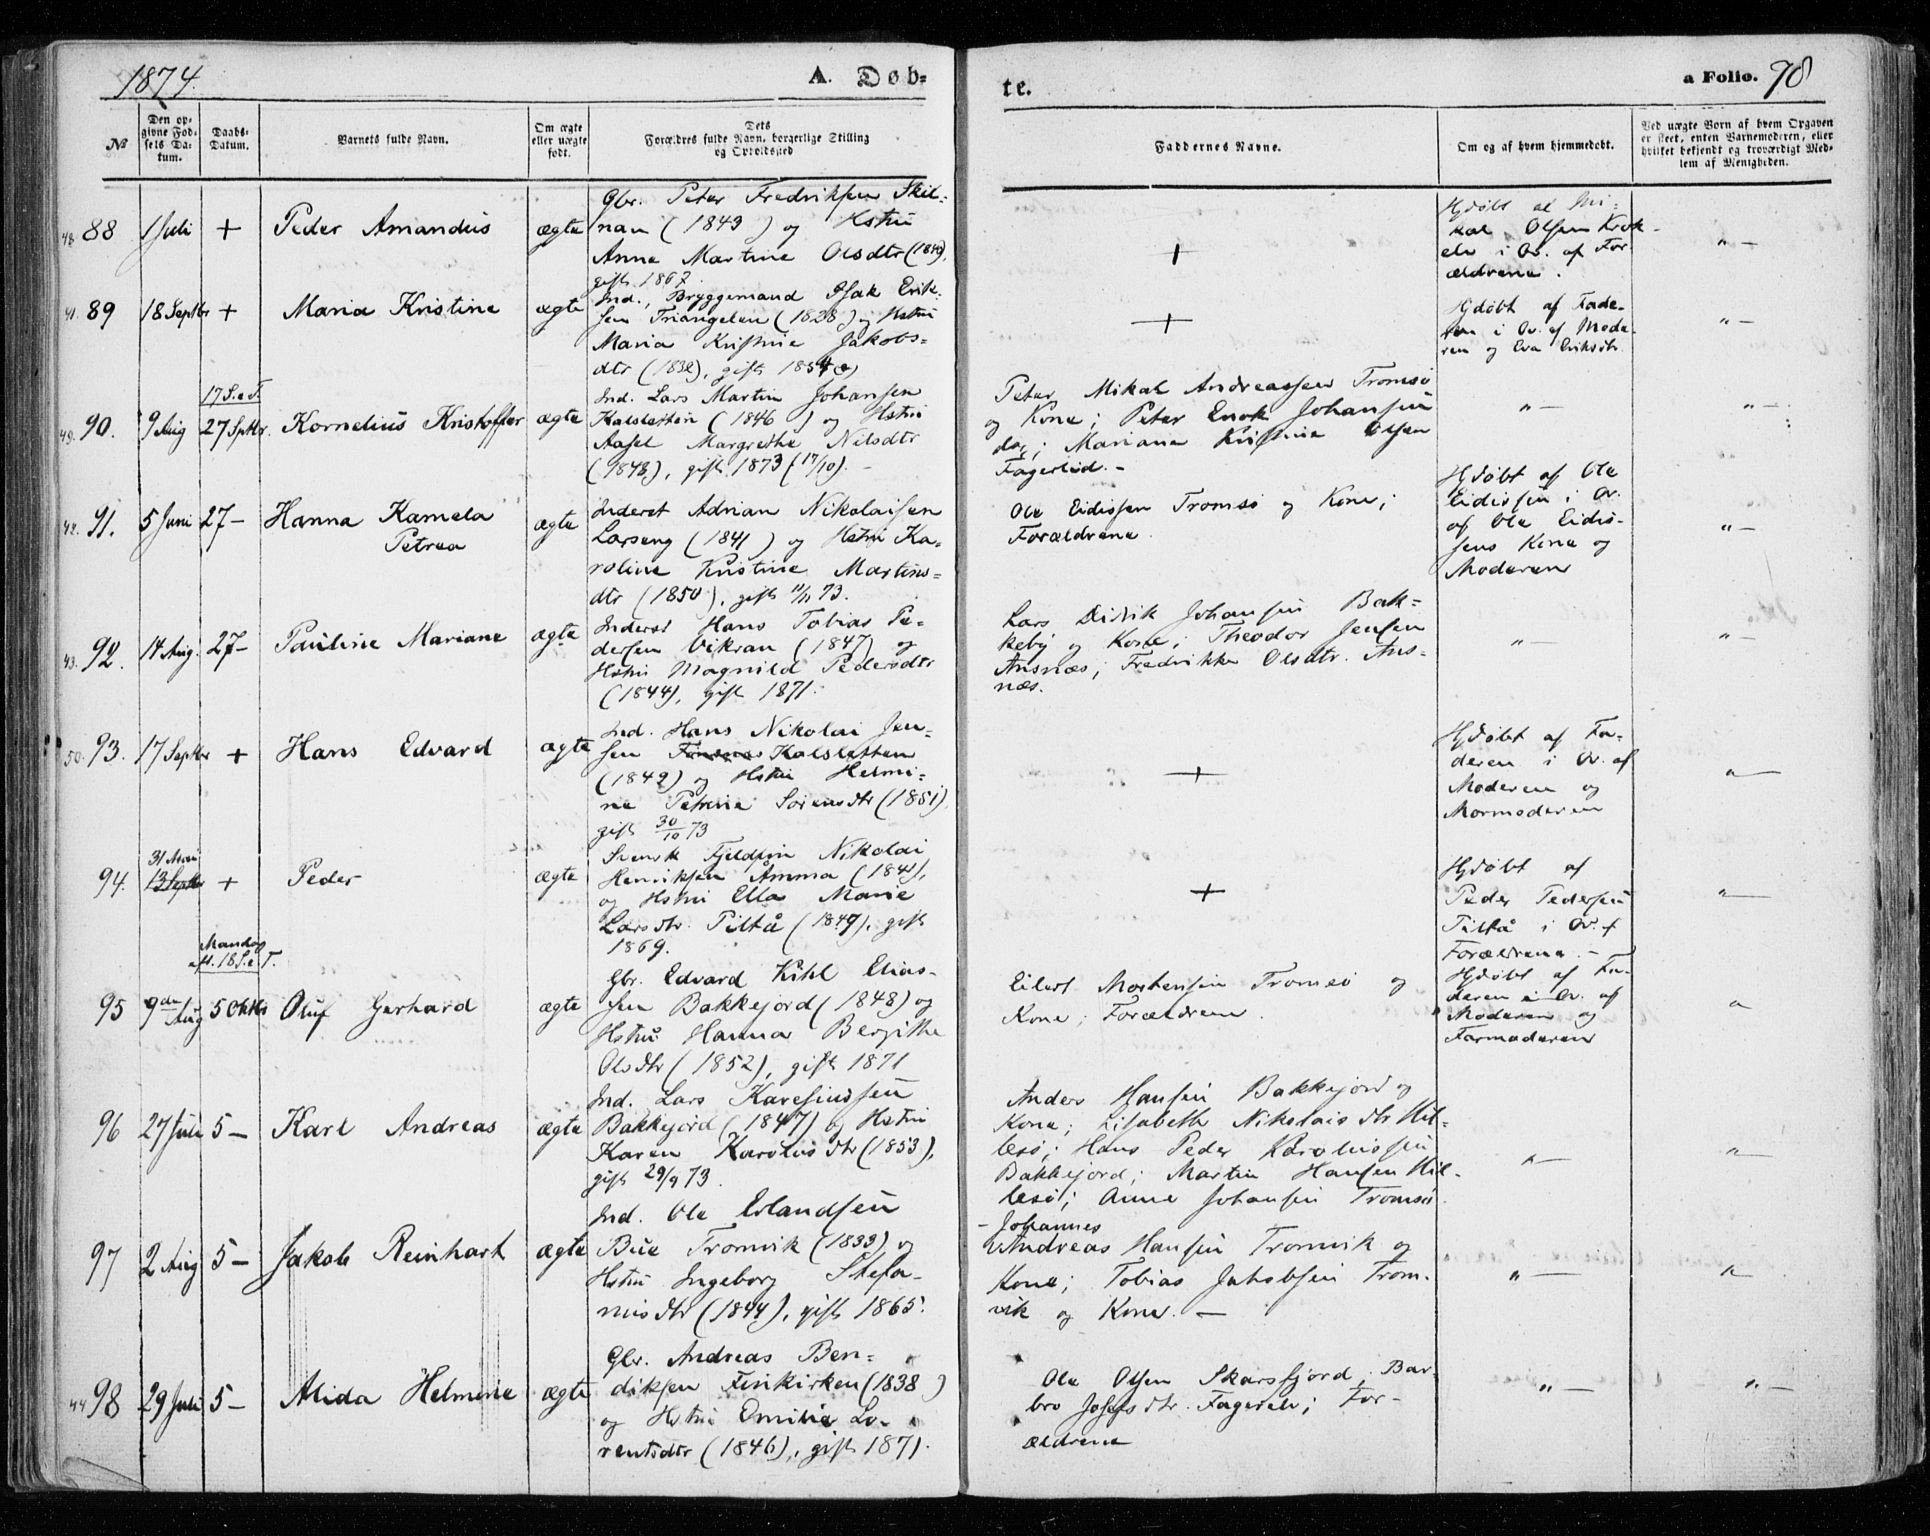 1874. A. Døb-
te. a Folio. 98
No
Den op-
givne Fød-
sels Da-
tum.
Daabs-
Datum.
Barnets fulde Navn.
Om ægte
eller uægte
født.
Dets
Forældres fulde Navn, borgerlige Stilling
og Opholdssted
Faddernes Navne.
Om og af hvem hjemmedøbt.
Ved uægte Børn af hvem Opgaven
er skeet, enten Barnemoderen, eller
hvilket bekjendt og troværdigt Med-
lem af Menigheden.
48. 88 1 Juli + Peder Amandus ægte
Gbr. Peter Fredriksen Skil-
nan (1843) og Hstru
Anna Martine Olsdtr (1849),
gift 1867.
+
Hjdøbt af Mi-
kal Olsen Krok-
elv i Ov. af For-
ældrene.
" —
41. 89 18 Septbr + Maria Kristine ægte
Ind., Bryggemand Isak Erik-
sen Triangelen (1828) og Hstru
Maria Kristine Jakobs-
dtr (1832), gift 1854
+
Hjdøbt af Fade-
ren i Ov. af Mode-
ren og Eva Eriksdtr.
" —
17 S. e. T.
49. 90. 9 Aug 27 Septbr. Kornelius Kristoffer ægte
Ind. Lars Martin Johansen
Kalsletten (1846) og Hstru
Aasel Margrethe Nilsdtr
(1848), gift 1873 (17/10). —
Peter Mikal Andreassen Tromsø
og Kone; Peter Enok Johansen
do.; Mariane Kristine Olsen
Fagerlid. —
" —
" —
42. 91. 5 Juni 27 — Hanna Kamela
Petrea
ægte
Inderst Adrian Nikolaisen
Larseng (1841) og Hstru Ka-
roline Kristine Martins-
dtr (1850), gift 11/11 73.
Ole Eidissen Tromsø og Kone;
Forældrene.
Hjdøbt af Ole
Eidissen i Ov.
af Ole Eidis-
sens Kone og
Moderen
" —
43. 92. 14 Aug. 27 — Pauline Mariane ægte
Inderst Hans Tobias Pe-
dersen Vikran (1847) og
Hstru Magnild Pedersdtr
(1844), gift 1871.
Lars Didrik Johansen Bak-
keby og Kone; Theodor Jensen
Ansnæs; Fredrikke Olsdtr. Ans-
næs.
" —
" —
50. 93. 17 Septbr + Hans Edvard ægte
Ind. Hans Nikolai Jen-
sen Kalsletten
(1842) og Hstru Helmi-
ne Petrine Sørensdtr (1851),
gift 30/10 73
+
Hjdøbt af Fa-
deren i Ov. af
Moderen og
Mormoderen
" —
94. 13 Septbr + Peder ægte
Svensk Fjeldfin Nikolai
Henriksen Åmma (1841),
og Hstru Ella Marie
Larsdtr. Piltå (1847), gift
1869.
+
Hjdøbt af
Peder Pedersen
Piltå i Ov. af
Forældrene. —
" —
Mandag
eft. 18 S. e. T.
95 9de Aug 5 Oktbr Oluf Gerhard ægte
Gbr. Edvard Kihl Elias-
sen Bakkejord (1848) og
Hstru Hanna Bergithe
Olsdtr (1852), gift 1871
Eilert Mortensen Tromsø og
Kone; Forældrene.
Hjdøbt af Fa-
deren i Ov. af
Moderen og
Farmoderen
"
96 27 Juli 5 — Karl Andreas ægte
Ind. Lars Karesiussen
Bakkejord (1847) og Hstru
Karen Karolusdtr (1853),
gift 29/9 73.
Anders Hansen Bakkejord og
Kone; Lisabeth Nikolaisdtr Hil-
lesø; Hans Peder Karolussen
Bakkejord; Martin Hansen Hil-
lesø; Anne Johansen Tromsø.
" —
" —
97 2 Aug 5 — Jakob Reinhart ægte
Ind. Ole Erlandsen
Bue Tromvik (1833) og
Hstru Ingeborg Stefa-
nusdtr (1844), gift 1865.
Johannes
Andreas Hansen Tromvik og
Kone; Tobias Jakobsen Trom-
vik og Kone. —
" —
" —
44 98 29 Juli 5 — Alida Helmine ægte
Gbr. Andreas Ben-
diksen Finkirken (1838)
og Hstru Emilie Lo-
rentsdtr (1846), gift 1871.
Ole Olsen Skarsfjord; Bar-
bro Josefsdtr. Fagerelv; For-
ældrene
" —
" —